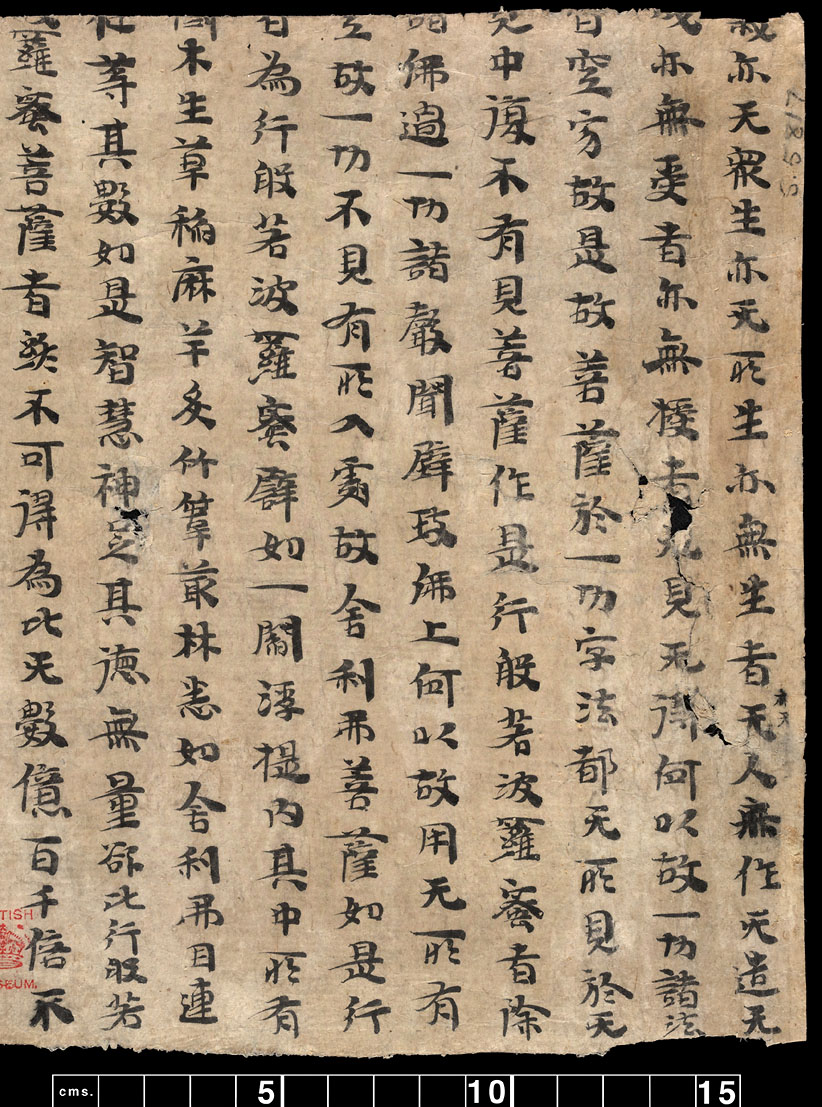 亦无眾生亦无所生亦無生者无人無作无造无
亦无
亦無受者亦無授者无見无得何以故一切諸法
皆空寂故是故菩薩於一切字法都无所見於无
見中復不有見菩薩作是行般若波羅蜜者除
諸佛過一切諸聲聞辟支佛上何以故用无所有
空故一切不見有所入處故舍利弗菩薩如是行
者為行般若波羅蜜譬如一閻浮提內其中所有
木生草稻麻芉炙竹葦叢林悉如舍利弗目連
等其數如是智慧神足其德無量欲比行般若
羅蜜菩薩者終不可得為比无數億百千倍不
S.5817
TISH
SEUM.
cms. 5 10 15